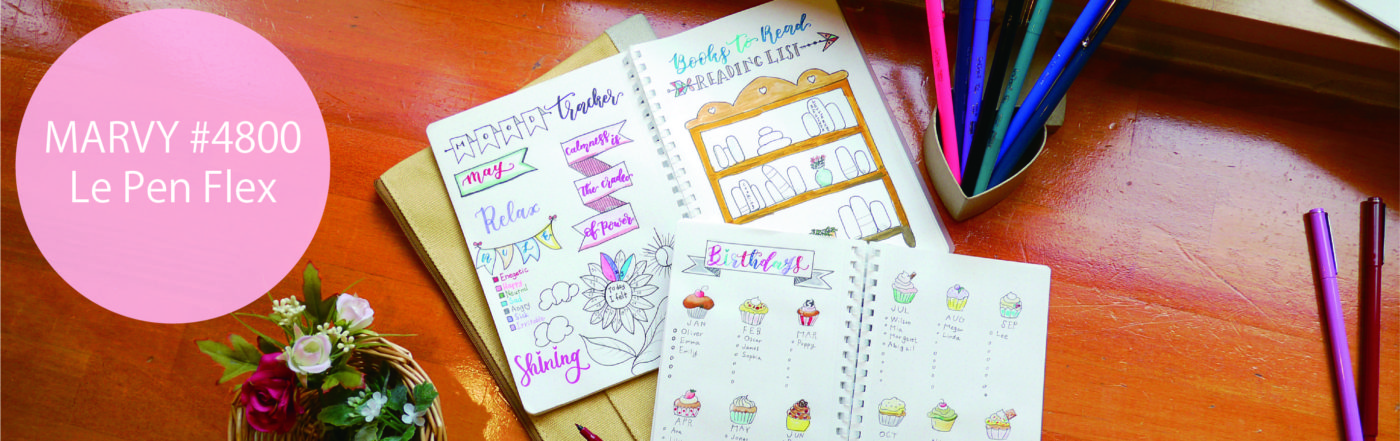 MARVY #4800
Le Pen Flex
MOOD tracker
May
Relax
Calmness is
The cradle
of Power
Energetic
Happy
Neutral
Sad
Angry
Sick
Irritable
today
I felt
Shining
Books to Read
READING LIST
Birthdays
JAN
Oliver
Emma
Emily
FEB
Oscar
James
Sophia
MAR
Poppy
APR
Ava
MAY
JUN
JUL
Wilson
Mia
Margaret
Abigail
AUG
Megan
Linda
SEP
Lee
OCT